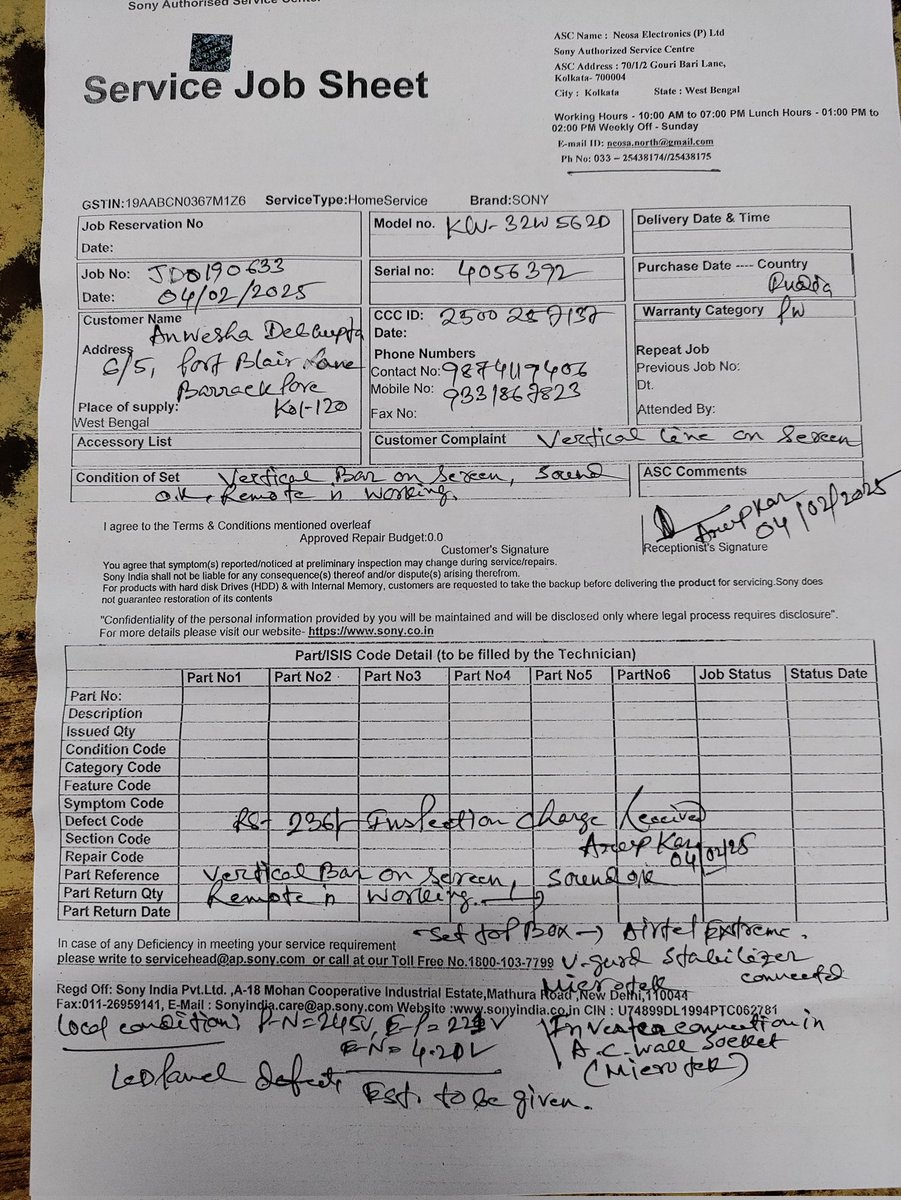 Sony Authorised Service Center
ASC Name : Neosa Electronics (P) Ltd
Sony Authorized Service Centre
ASC Address : 70/1/2 Gouri Bari Lane,
Kolkata- 700004
City : Kolkata State : West Bengal
Service Job Sheet
Working Hours - 10:00 AM to 07:00 PM Lunch Hours - 01:00 PM to
02:00 PM Weekly Off - Sunday
E-mail ID: neosa.north@gmail.com
Ph No: 033 – 25438174//25438175
GSTIN:19AABCN0367M1Z6 ServiceType:HomeService Brand:SONY
Job Reservation No
Date:
Model no. KLV-32W562D
Delivery Date & Time
Job No: JD0190633
Date: 04/02/2025
Serial no: 4056392
Purchase Date ---- Country
Customer Name Anwesha DebGupta
Address 6/5, Port Blair Lane
Barrackpore
Kol-120
Place of supply:
West Bengal
CCC ID: 2500 257137
Date:
Phone Numbers
Contact No: 9874117406
Mobile No: 9331867823
Fax No:
Warranty Category
Repeat Job
Previous Job No:
Dt.
Attended By:
Accessory List
Customer Complaint Vertical Line on Screen
Condition of Set Vertical Bar on Screen, Sound
O.K, Remote n working.
ASC Comments
Anup Kar
04/02/2025
Receptionist's Signature
I agree to the Terms & Conditions mentioned overleaf
Approved Repair Budget:0.0
Customer's Signature
You agree that symptom(s) reported/noticed at preliminary inspection may change during service/repairs.
Sony India shall not be liable for any consequence(s) thereof and/or dispute(s) arising therefrom.
For products with hard disk Drives (HDD) & with Internal Memory, customers are requested to take the backup before delivering the product for servicing.Sony does
not guarantee restoration of its contents
"Confidentiality of the personal information provided by you will be maintained and will be disclosed only where legal process requires disclosure".
For more details please visit our website- https://www.sony.co.in
Part/ISIS Code Detail (to be filled by the Technician)
Part No1 Part No2 Part No3 Part No4 Part No5 PartNo6 Job Status Status Date
Part No:
Description
Issued Qty
Condition Code
Category Code
Feature Code
Symptom Code
Defect Code RS- 236/- Inspection charge received
Section Code Anup Kar
Repair Code 04/02/25
Part Reference Vertical Bar on Screen, Sound ok
Part Return Qty Remote n working.
Part Return Date
Set top Box → Airtel Extreme.
In case of any Deficiency in meeting your service requirement
please write to servicehead@ap.sony.com or call at our Toll Free No.1800-103-7799
V-gurd Stabilizer
connected
Microtek
Regd Off: Sony India Pvt.Ltd. ,A-18 Mohan Cooperative Industrial Estate,Mathura Road ,New Delhi,110044
Fax:011-26959141, E-Mail : Sonyindia.care@ap.sony.com Website :www.sonyindia.co.in CIN : U74899DL1994PTC062781
Local condition: P-N=245V, E-P=221V
E-N= 4.20V
Inverter connection in
A.C. wall Socket
(Microtek)
LED Panel defects
Est. to be given.